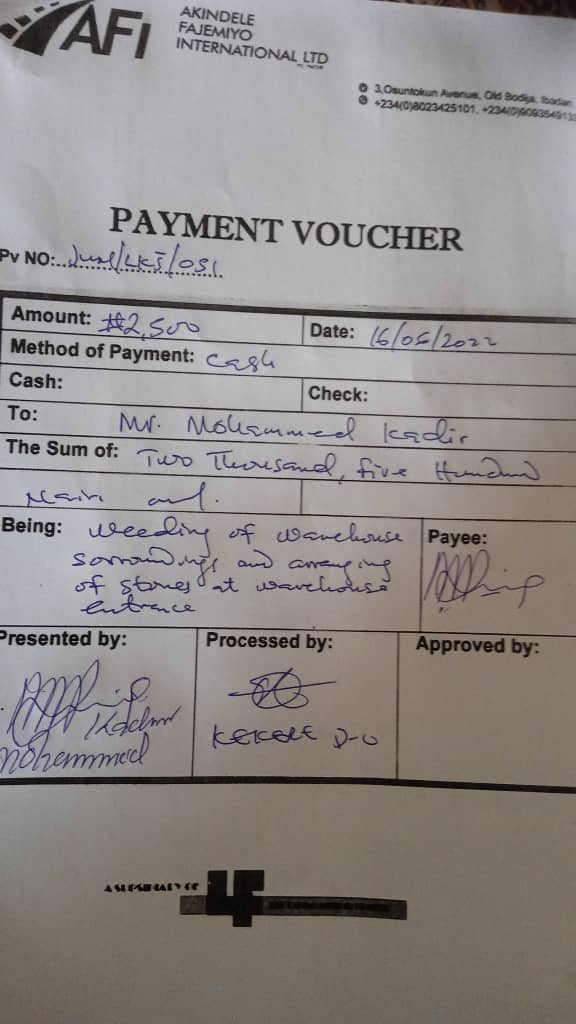 AFI
AKINDELE
FAJEMIYO
INTERNATIONAL LTD
3,Osuntokun Avenue, Old Bodija, Ibadan
+234(0)8023425101, +234(0)909354913
PAYMENT VOUCHER
Pv NO: June/LKJ/051
Amount: ₦2,500
Date: 16/06/2022
Method of Payment: Cash
Cash:
Check:
To: Mr. Mohammed Kadir
The Sum of: Two Thousand, five Hundred
Naira
Being: Weeding of warehouse
sorroundings and arranging
of stones at warehouse
entrance
Payee:
Presented by:
Processed by:
Approved by:
Kadir
Mohammed
KEKERE D-O
A SUBSIDIARY OF